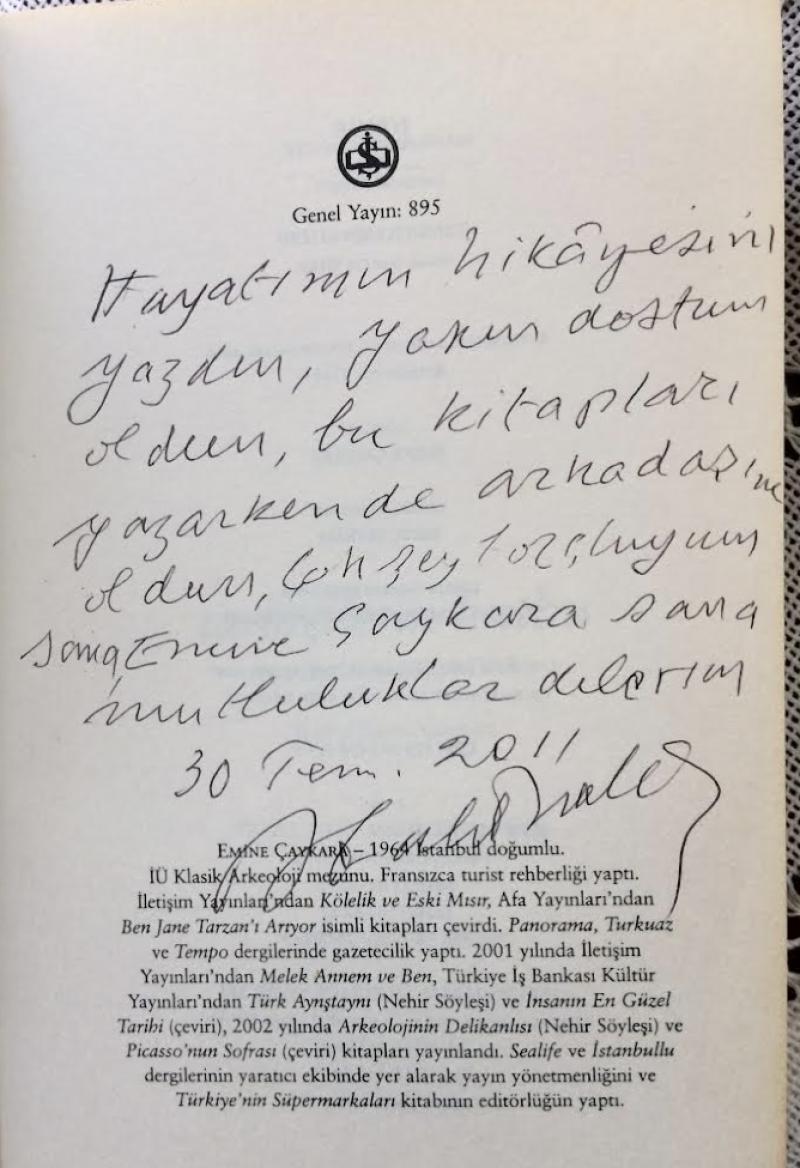 Genel Yayın: 895
Hayatımın hikâyesini
yazdın, yakın dostum
oldun, bu kitapları
yazarken de arkadaşım
oldun, çok şey borçluyum
sana, Emine Çaykara sana
mutluluklar dilerim
30 Tem. 2011
EMİNE ÇAYKARA – 1964 İstanbul doğumlu.
İÜ Klasik Arkeoloji mezunu. Fransızca turist rehberliği yaptı.
İletişim Yayınları'ndan Kölelik ve Eski Mısır, Afa Yayınları'ndan
Ben Jane Tarzan'ı Arıyor isimli kitapları çevirdi. Panorama, Turkuaz
ve Tempo dergilerinde gazetecilik yaptı. 2001 yılında İletişim
Yayınları'ndan Melek Annem ve Ben, Türkiye İş Bankası Kültür
Yayınları'ndan Türk Aynştaynı (Nehir Söyleşi) ve İnsanın En Güzel
Tarihi (çeviri), 2002 yılında Arkeolojinin Delikanlısı (Nehir Söyleşi) ve
Picasso'nun Sofrası (çeviri) kitapları yayınlandı. Sealife ve İstanbullu
dergilerinin yaratıcı ekibinde yer alarak yayın yönetmenliğini ve
Türkiye'nin Süpermarkaları kitabının editörlüğün yaptı.